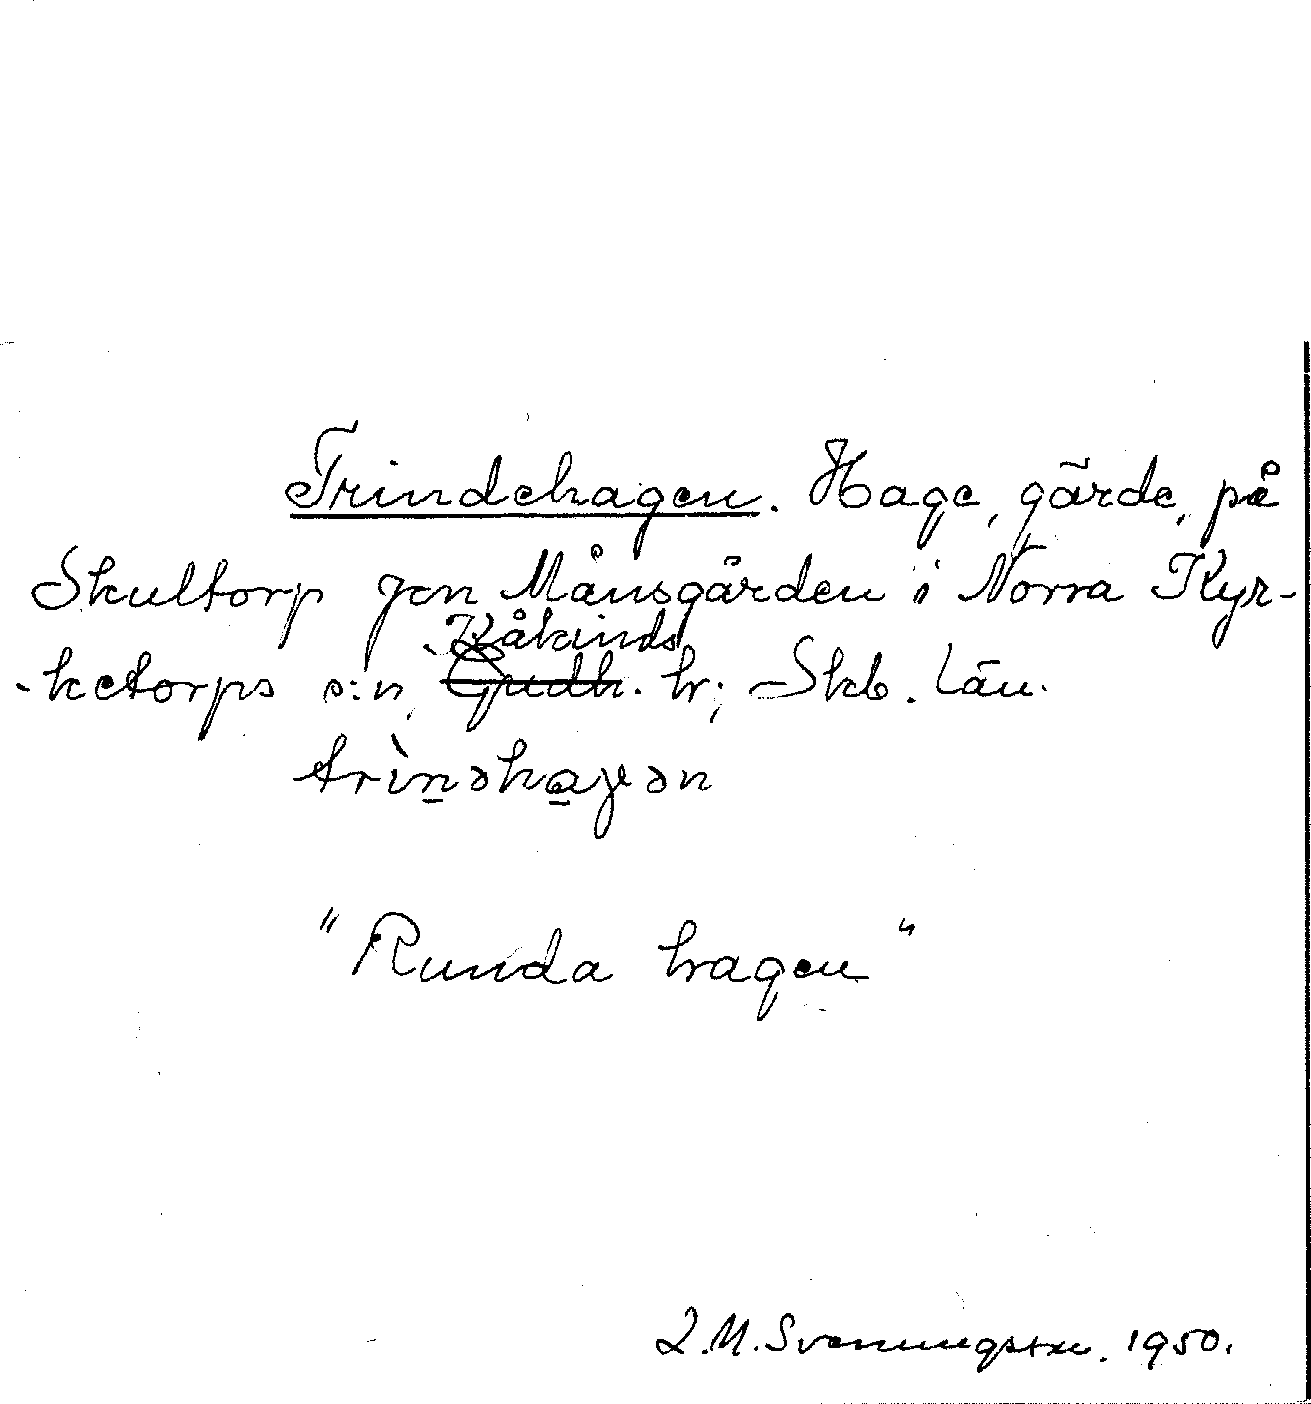 Trindehagen. Hage, gärde, på
Skultorp Jon Månsgården i Norra Kyr-
-ketorps s:n, Kåkinds hr; Skb. län.
trìn̲əha̲gən
"Runda hagen"
L.M. Svenungsson. 1950.